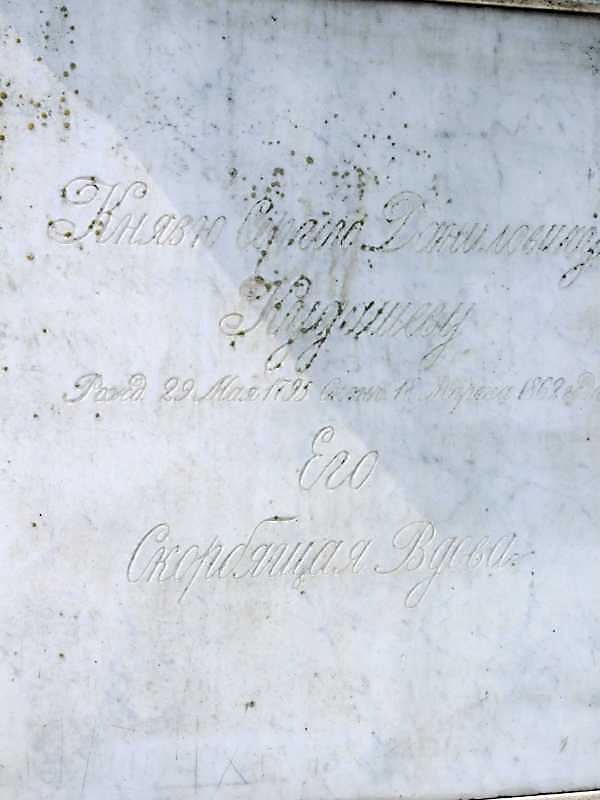 Князю Сергею Даниловичу
Кудашеву
Рожд. 29 Мая 1795 Сконч. 18 Марта 1862
Его
Скорбящая Вдова.